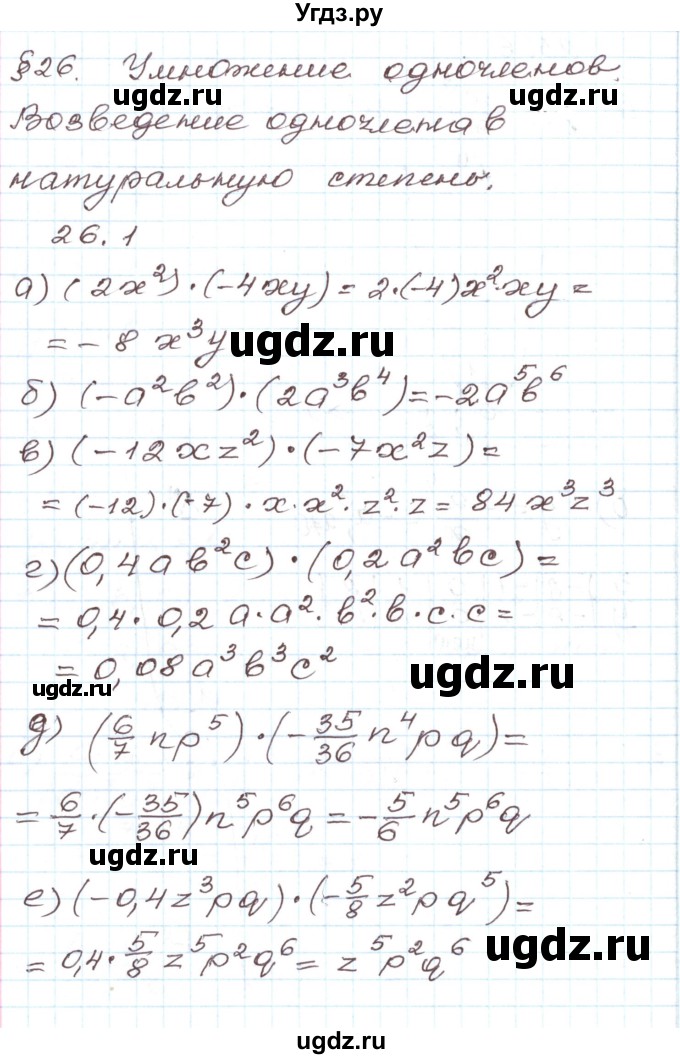 Угдз.ру
§26. Умножение одночленов.
ugdz.ru ugdz.ru
Возведение одночлена в
натуральную степень.
26.1
а) (2x²)·(-4xy) = 2·(-4)x²·xy =
= - 8 x³y
ugdz.ru
б) (-a²b²)·(2a³b⁴)=-2a⁵b⁶
в) (-12xz²)·(-7x²z) =
= (-12)·(-7)·x·x²·z²·z = 84x³z³
г) (0,4ab²c)·(0,2a²bc) =
= 0,4·0,2a·a²·b²·b·c·c =
= 0,08a³b³c²
ugdz.ru ugdz.ru
д) (6/7 np⁵)·(-35/36 n⁴pq) =
= 6/7·(-35/36)n⁵p⁶q = -5/6 n⁵p⁶q
ugdz.ru
е) (-0,4z³pq)·(-5/8 z²pq⁵) =
= 0,4·5/8 z⁵p²q⁶ = z⁵p²q⁶
ugdz.ru
ugdz.ru